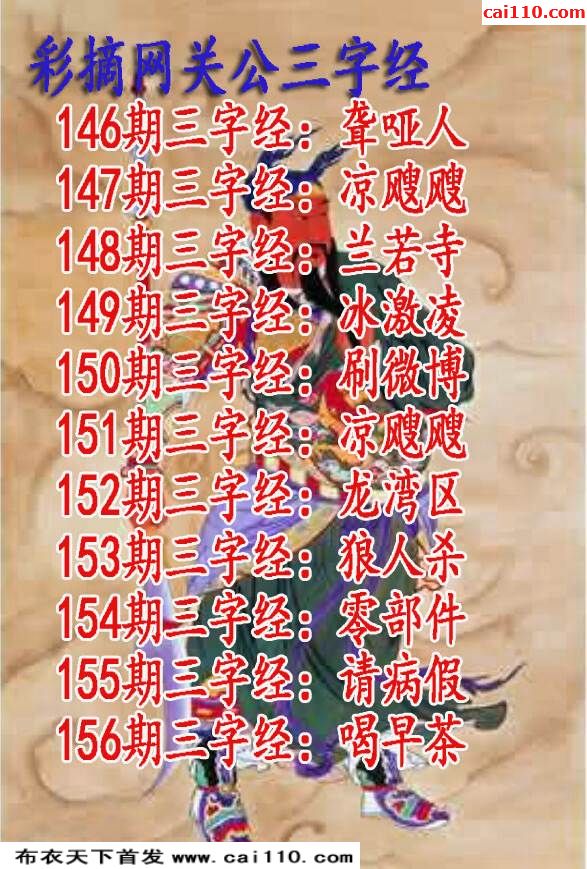 cai110.com
彩摘网关公三字经
146期三字经：聋哑人
147期三字经：凉飕飕
148期三字经：兰若寺
149期三字经：冰激凌
150期三字经：刷微博
151期三字经：凉飕飕
152期三字经：龙湾区
153期三字经：狼人杀
154期三字经：零部件
155期三字经：请病假
156期三字经：喝早茶
布衣天下首发 www.cai110.com